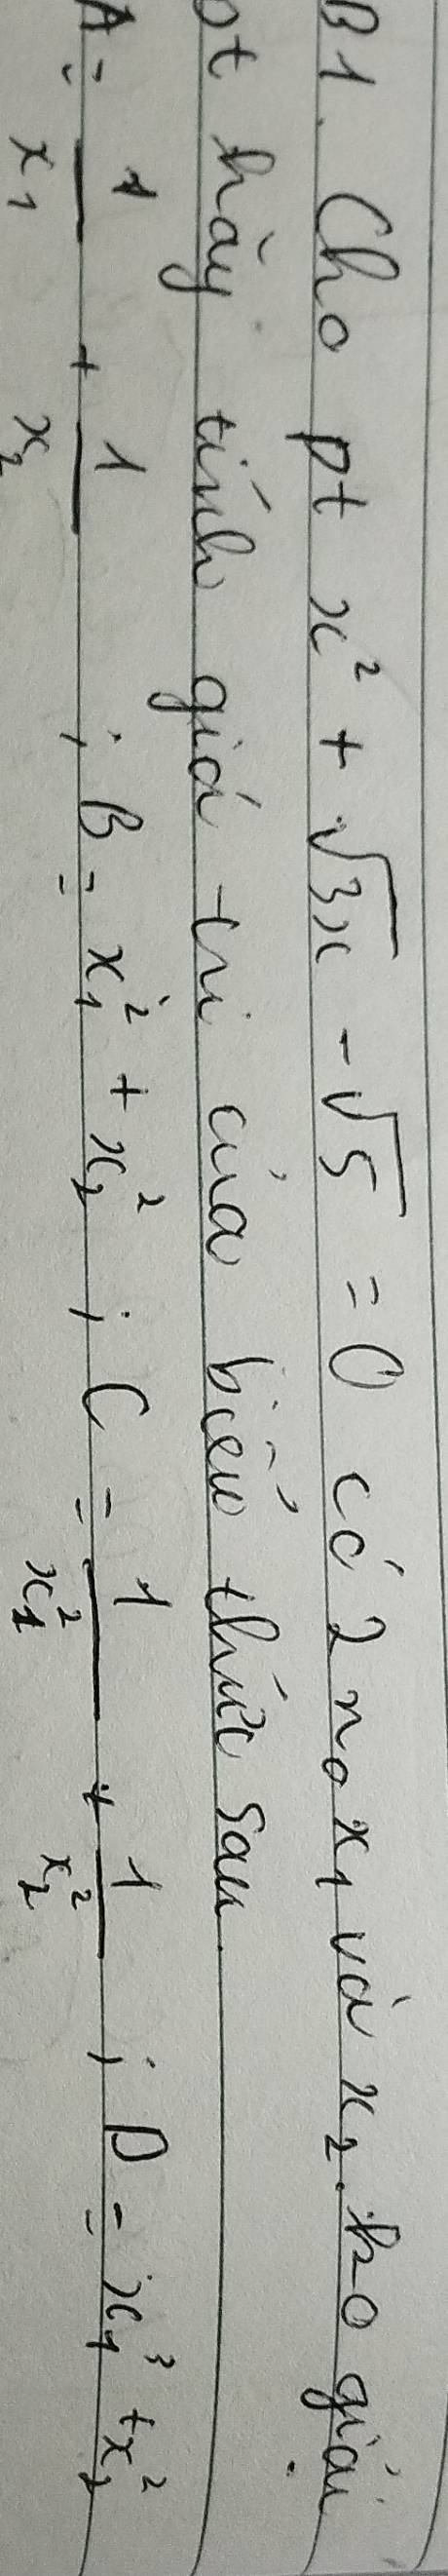 B1. Cho pt x² + √3x - √5 = 0 có 2 no x₁ và x₂. ko giải
pt hãy tính giá trị của biểu thức sau
A = 1/x₁ + 1/x₂ ; B = x₁² + x₂² ; C = 1/x₁² + 1/x₂² ; D = x₁³ + x₂²